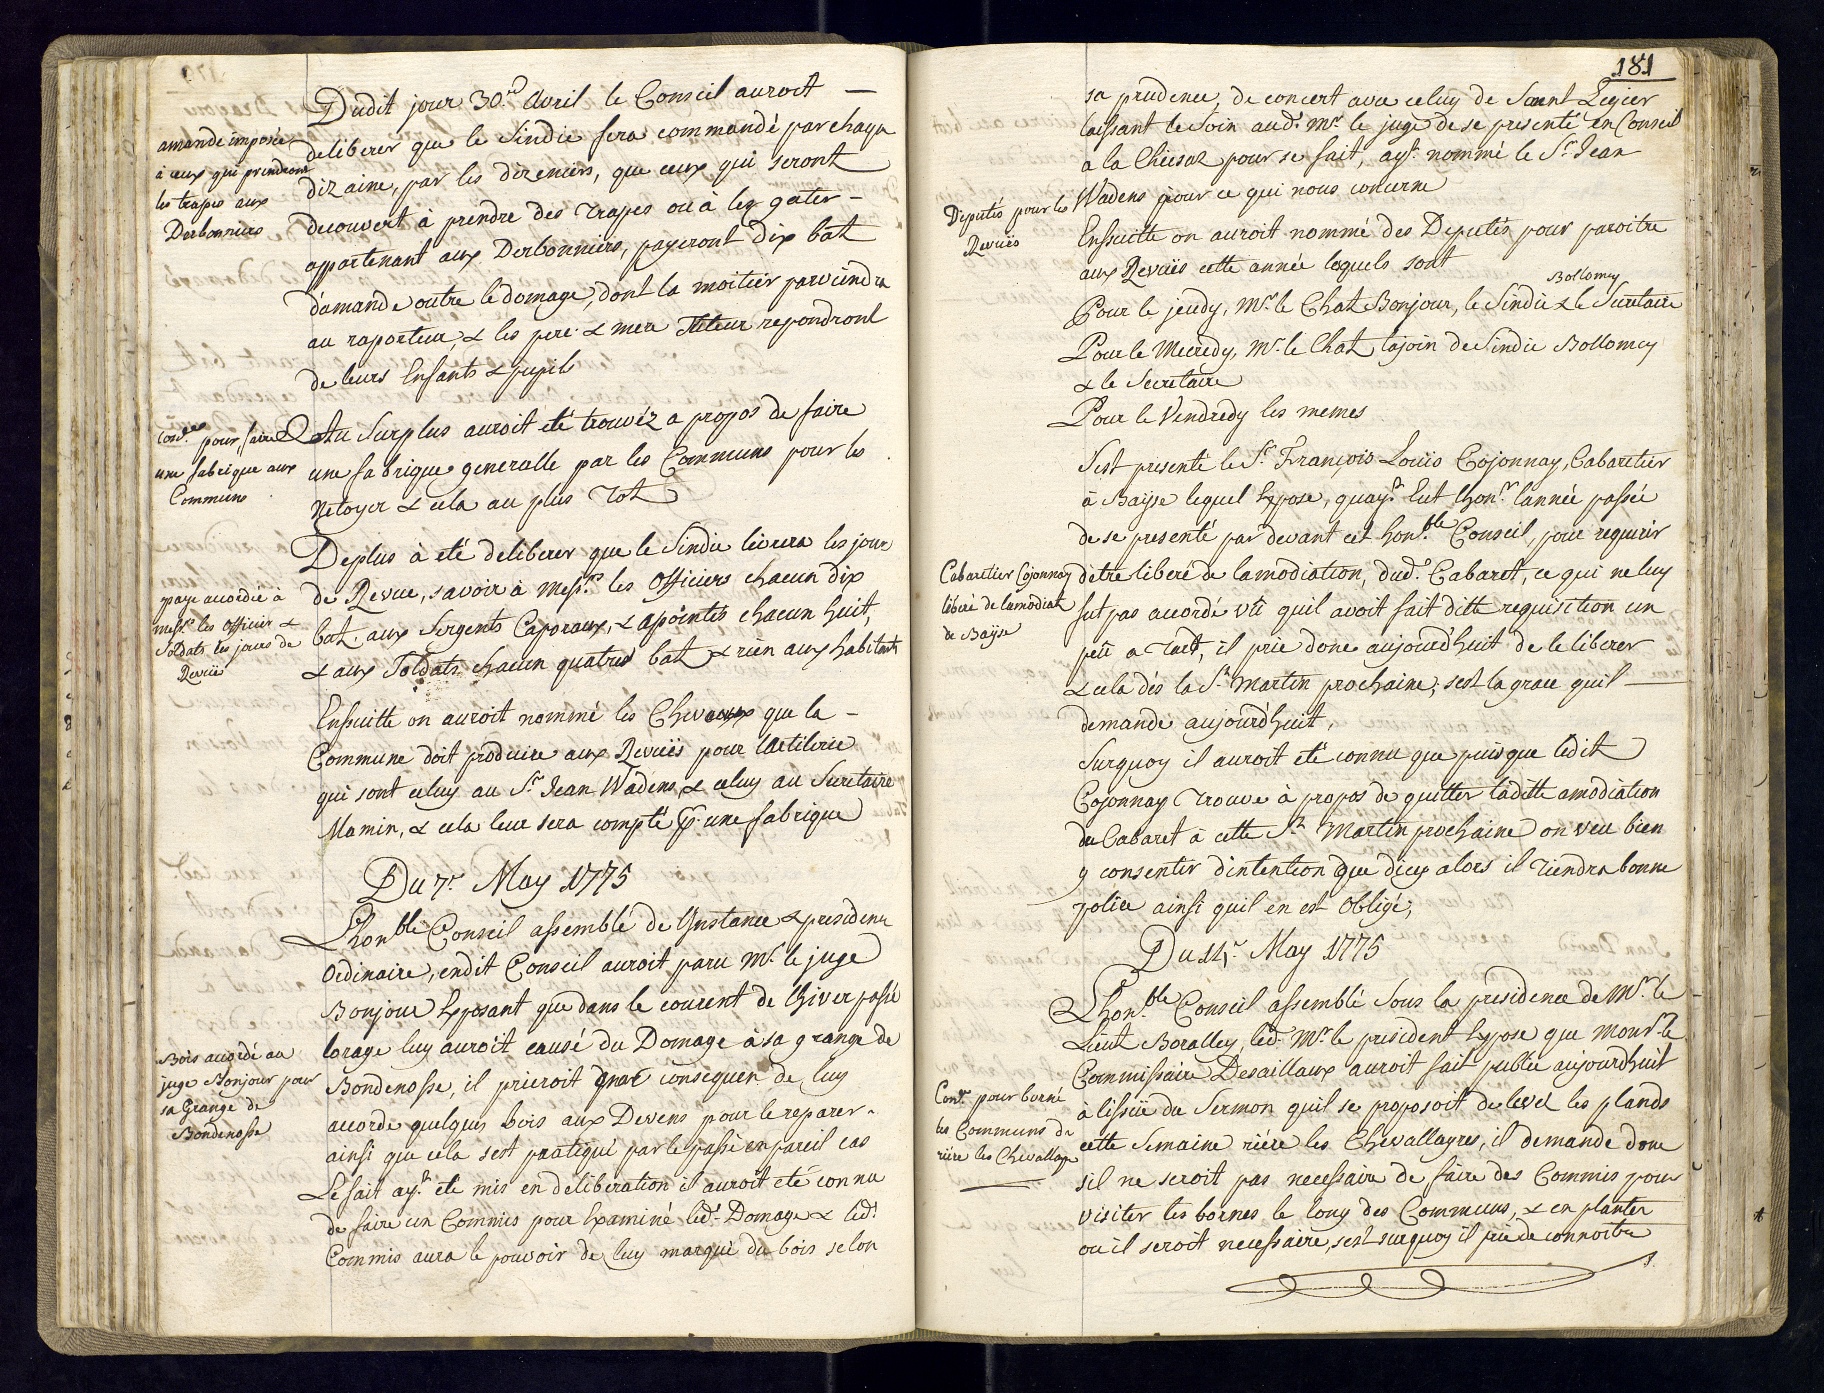 Dudit jour 30.e Avril le Conseil auroit
amande imposée
à ceux qui prendront
les trapes aux
Derbonniers
deliberer que le Sindic sera commandé par chaqu
dizaine, par les dizeniers, que ceux qui seront
decouvert à prendre des trapes ou à les gater
appartenant aux Derbonniers, payeront dix bat
d'amande outre le domage, dont la moitier parviendra
au raporteur, & les pere & mere Tuteur repondront
de leurs Enfants & pupils
pour faire
une fabrique aux
Communs
Au Surplus auroit eté trouvéz a propos de faire
une fabrique generalle par les Communs pour les
Netoyer & cela au plus Tot
Deplus à eté deliberer que le Sindic livrera les jour
paye accordée à
mess.rs les Officier &
Soldats les jours de
Revuës
de Revue, savoir à Mess.rs les Officiers chacun dix
bat. aux Sergents Caporaux, & apointés chacun huit,
& aux Soldats chacun quatres bat & rien aux habitant
Ensuitte on auroit nommé les Chevaux que la
Commune doit produire aux Revuës pour lartilerie
qui sont celuy au S.r Jean Wadens, & celuy au Suretaire
Mamin, & cela leur sera compté p.r une fabrique
Du 7.e May 1775
Lhon.ble Conseil assemblé de Ynstance & presidence
Ordinaire, endit Conseil auroit paru M.r le juge
Bonjour Exposant que dans le courent de lhiver passé
lorage luy auroit causé du Domage à sa grange de
Bois accordé au
juge Bonjour pour
sa Grange de
Bondenosse
Bondenosse, il prieroit consequen de luy
accorde quelques bois aux Devens pour le reparer
ainsi que cela sest pratiqué par le passé en pareil cas
Le fait ay.t eté mis en deliberation il auroit eté connu
de faire un Commis pour Examiné led.t Domage & led.t
Commis aura le pouvoir de luy marqué du bois selon
181
sa prudence, de concert avec celuy de Saint Legier
laissant le Soin aud.t M.r le juge de se presenté en Conseil
a la Chiesaz pour se fait, ay.t nommé le S.r Jean
Wadens pour ce qui nous concerne
Deputés pour les
Revuës
Ensuitte on auroit nommé des Deputés pour paroitre
aux Revuës cette année lesquels sont
Bollomey
Pour le jeudy, M.r le Chat Bonjour, le Sindic & le Suretaire
Pour le Mecredy, M.r le Chat lajoin de Sindic Bollomey
& le Secretaire
Pour le Vendredy les memes
Sest presenté le S.r François Louïs Cojonnay, Cabaretier
à Baÿse lequel Expose, quay.t Eut lhon.r lannée passée
de se presenté par devant cet hon.ble Conseil, pour requerir
Cabaretier Cojonnay
liberé de lamodiat.
de Baÿse
detre liberé de lamodiation, dud.t Cabaret, ce qui ne luy
fut pas accordé vû quil avoit fait ditte requisition un
peu a Tard, il prie donc aujourd'huit de le liberer
& cela dès la S.t Martin prochaine, sest la grace quil
demande aujourd'huit,
Surquoy il auroit eté connu que puisque ledit
Cojonnay Trouve à propos de quitter laditte amodiation
du Cabaret à cette S.t Martin prochaine on veu bien
y consenter d'intention que d'icy alors il Tiendra bonne
police ainsi quil en est Obligé,
Du 14.e May 1775
Lhon.ble Conseil assemblé Sous la presidence de M.r le
Lieut Boralley, led.t M.r le president Expose que Mons.r le
Commissaire Desaillaux auroit fait publié aujourdhuit
Con.r pour borné
les Communs de
riére les Chevallayre
à lissuë du Sermon quil se proposoit de levé les plands
cette Semaine riére les Chevallayres, il demande donc
sil ne seroit pas necessaire de faire des Commis pour
visiter les bornes le long des Communs, & en planter
ou il seroit necessaire, sest surquoy il prie de connoitre